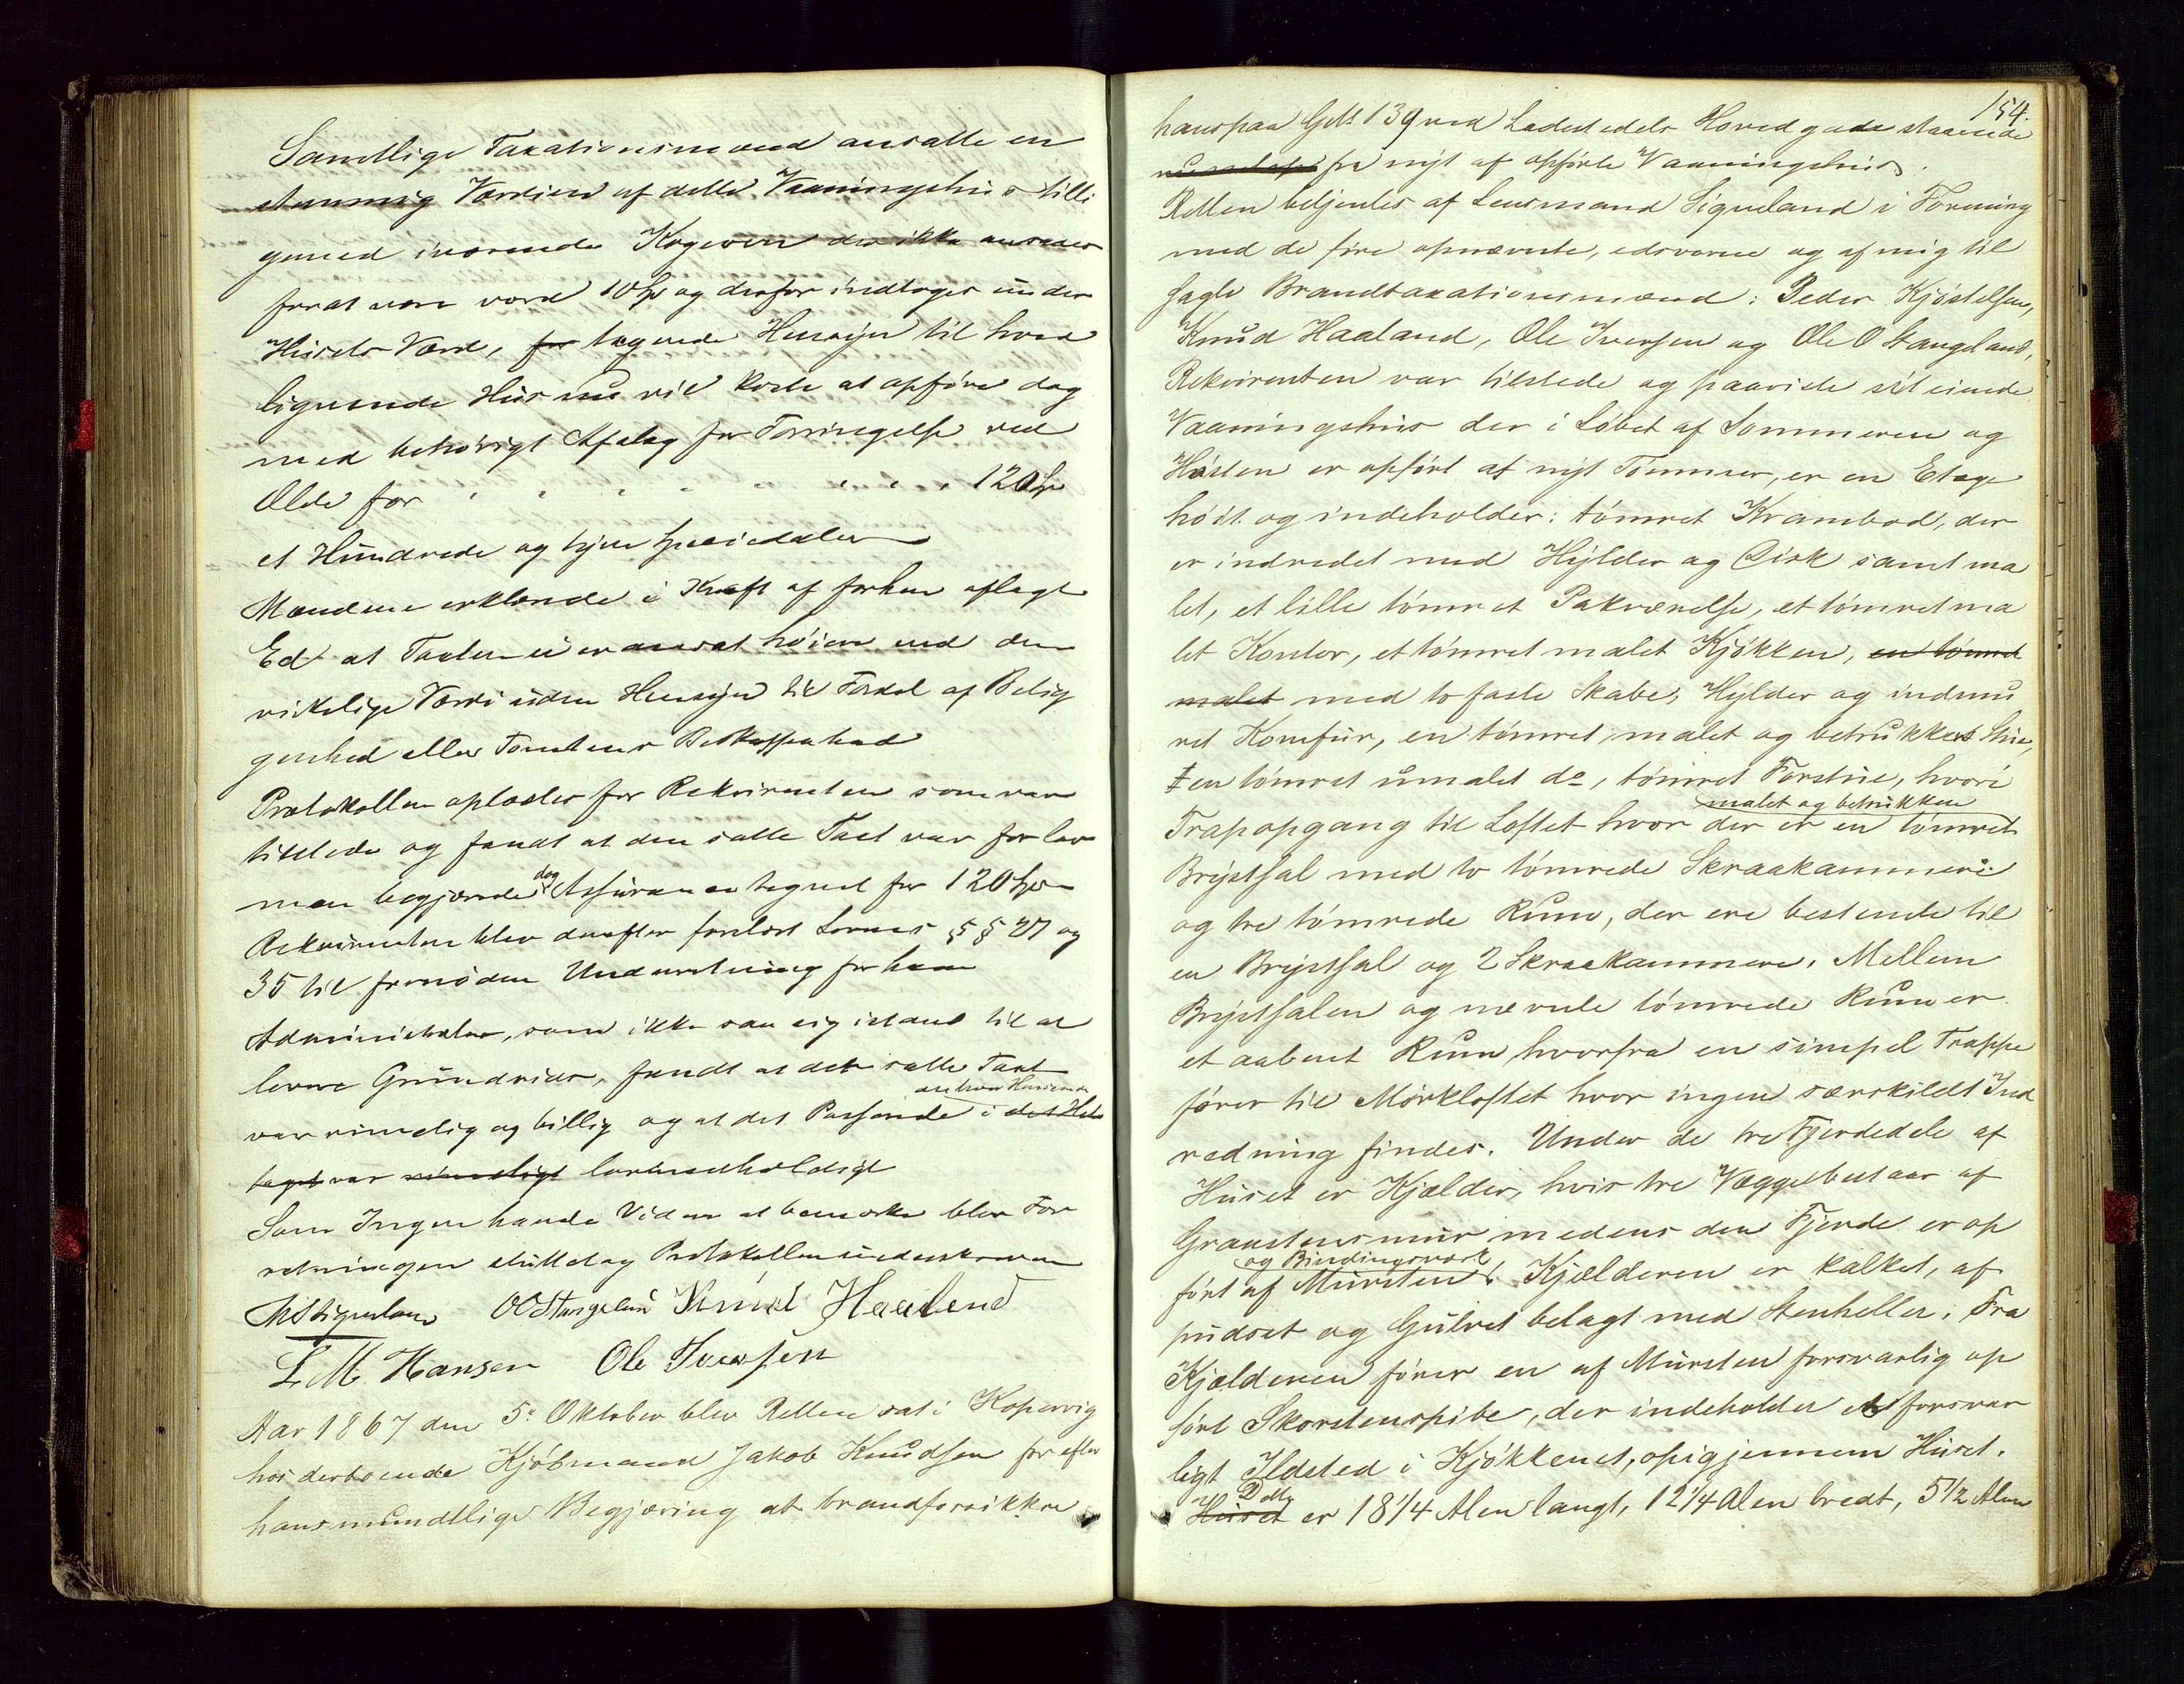 Samtlige Taxationsmænd ansatte en
stemmig Værdien af dette Vaaningshus tilli
gemed iværende Kogeovn der ikke ansees
forat være værd 10 Sp og derfor indtages under
Husets Værd, for tagende Hensyn til hvad
lignende Hus nu vil koste at opføre dog
med behørigt Afslag for Forringelse ved
Ælde for . . . . . . . . . 120 Sp
et Hundrede og tyve Speciedaler
Mændene erklærede i Kraft af forhen aflagt
Ed at Taxten ei er ansat høiere end den
virkelige Værdi uden Hensyn til Fordel af Belig
genhed eller Tomtens Beskaffenhed
Protokollen oplæstes for Rekvirenten som var
tilstede og fandt at den satte Taxt var for lav
men begjærede dog Assurance tegnet for 120 Sp
Rekvirenten blev derefter forelæst Lovens §§ 27 og
35 til fornøden Underretning for ham
Administrator, som ikke saa sig istand til at
levere Grundrids, fandt at den satte Taxt
anhver Henseende
var rimelig og billig og at det Passerede i det Hele
taget var rimeligt lovmedholdigt
Som Ingen havde Videre at bemærke blev For
retningen sluttet og Protokollen underskreven
MSiqueland OOStangeland Knud Haaland
L. M. Hansen Ole Iversen
Aar 1867 den 5te Oktober blev Retten sat i Kopervig
hos derboende Kjøbmand Jakob Knudsen for efter
hans mundtlige Begjæring at brandforsikkre
154.
hans paa Gde № 139 ved Ladestedets Hovedgade staaende
fra nyt af opførte Vaaningshus.
Retten betjentes af Lensmand Siqueland i Forening
med de fire opnævnte, edsvorne og af mig til
sagte Brandtaxationsmænd: Peder Kjøstelsen,
Knud Haaland, Ole Iversen og Ole O Stangeland,
Rekvirenten var tilstede og paaviste sit eiende
Vaaningshus der i Løbet af Sommeren og
Høsten er opført af nyt Tømmer, er en Etage
høit og indeholder: tømret Krambod, der
er indredet med Hylder og Disk samt ma
let, et lille tømret Pakværelse, et tømret ma
let Kontor, et tømret malet Kjøkken, en tømret
malet med to faste Skabe, Hylder og indmu
ret Komfur, en tømret, malet og betrukket Stue,
en tømret umalet do, tømret Forstue, hvori
malet og betrukken
Trapopgang til Loftet hvor der er en tømret
Brystsal med to tømrede Skraakammere
og tre tømrede Rum, der ere bestemte til
en Brystsal og 2 Skraakammere. Mellem
Brystsalen og nævnte tømrede Rum er
et aabent Rum hvorfra en simpel Trappe
fører til Mørkloftet hvor ingen særskildt Ind
redning findes. Under de tre Fjerdedele af
Huset er Kjælder, hvis tre Vægge bestaar af
Graastensmur medens den Fjerde er op
og Bindingsværk
ført af Mursten. Kjælderen er kalket, af
pudset og Gulvet belagt med Stenheller. Fra
Kjælderen fører en af Mursten forsvarlig op
ført Skorstenspibe, der indeholder et forsvar
ligt Ildsted i Kjøkkenet, op igjennem Huset.
Dette
Huset er 18 1/4 Alen langt, 12 1/4 Alen bredt, 5 1/2 Alen